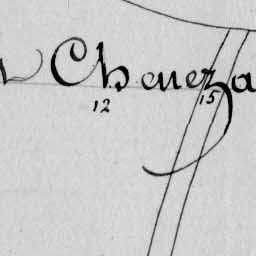 Cheneza
12
15